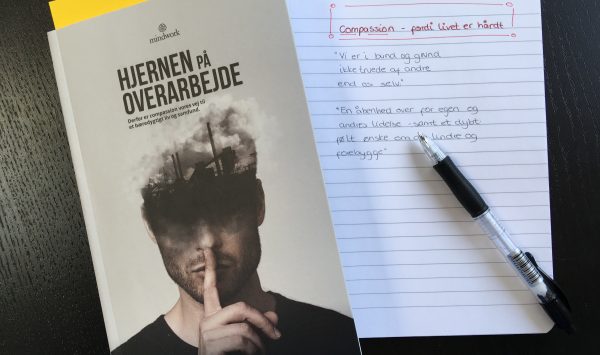 mindwork
HJERNEN PÅ
OVERARBEJDE
Derfor er compassion vores vej til
et bæredygtigt liv og samfund.
Compassion - fordi livet er hårdt
"Vi er i bund og grund
ikke truede af andre
end os selv."
"En åbenhed over for egen og
andres lidelse - samt et dybt
følt ønske om at lindre og
forebygge"